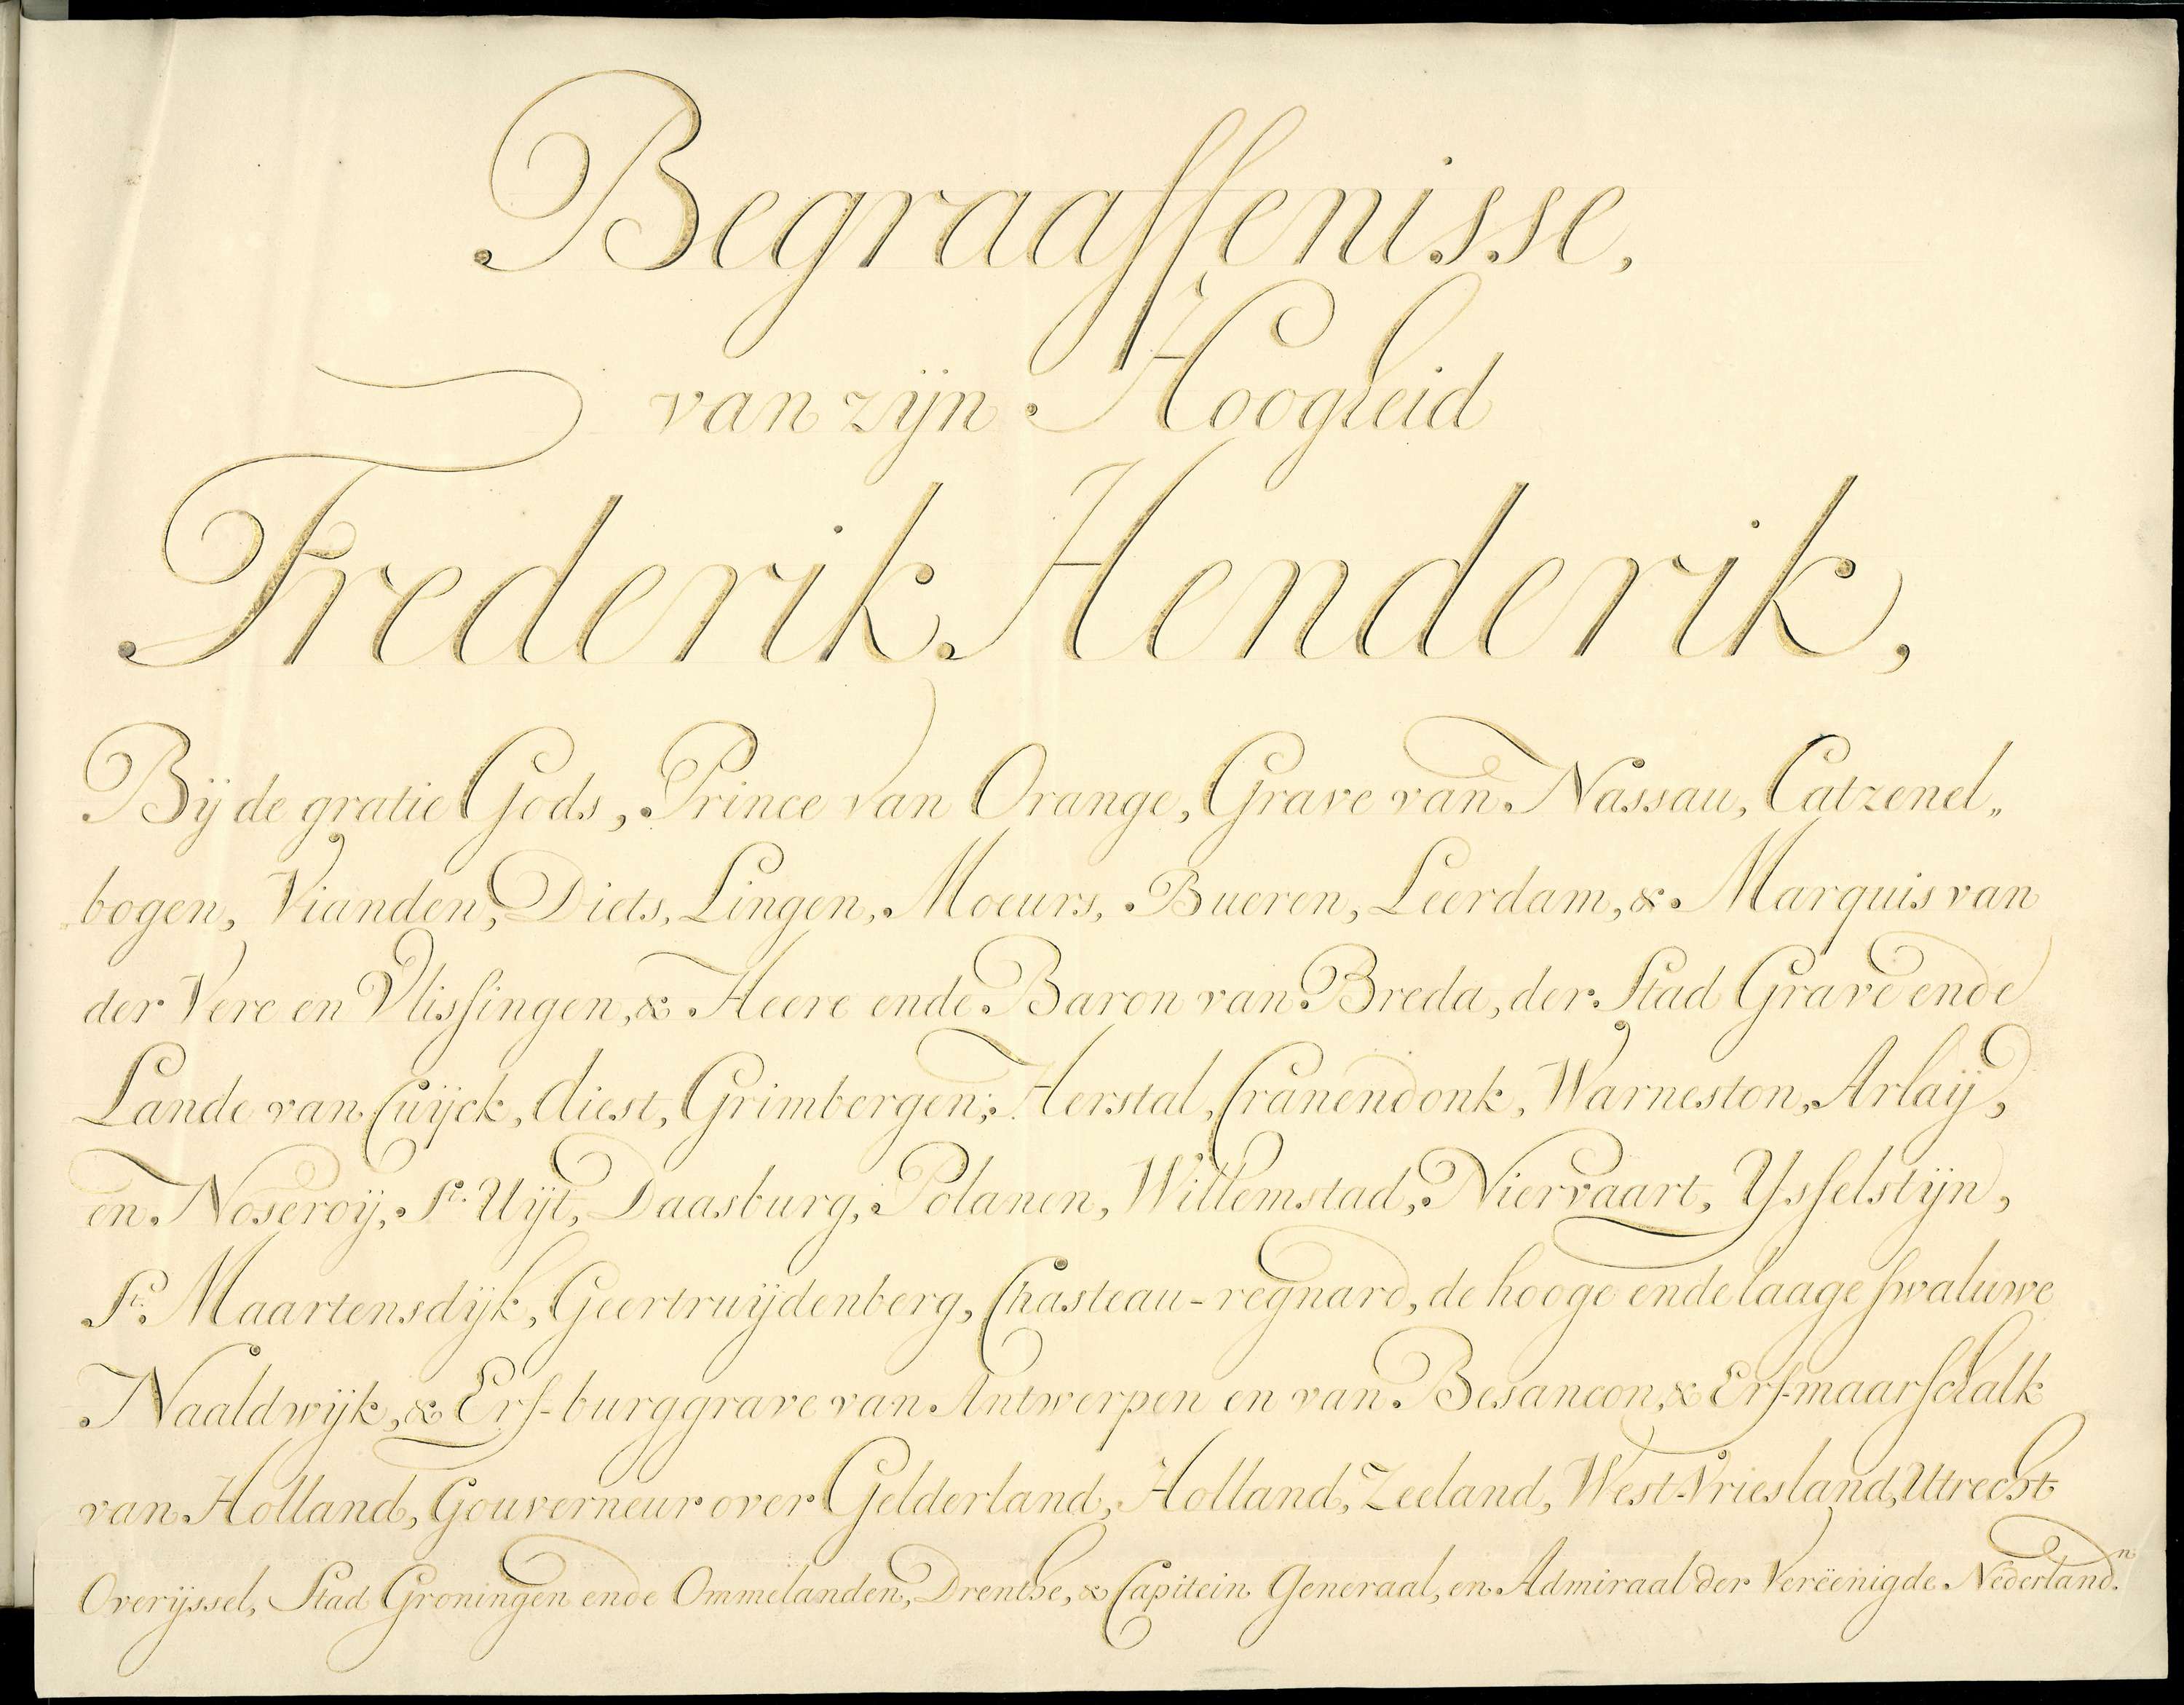 Begraaffenisse,
van zijn Hoogheid
Frederik Henderik,
Bij de gratie Gods, Prince van Orange, Grave van Nassau, Catzenel„
bogen, Vianden, Diets, Lingen, Moeurs, Bueren, Leerdam, &. Marquis van
der Vere en Vlissingen, &. Heere ende Baron van Breda, der Stad Grave ende
Lande van Cuijck, diest, Grimbergen, Herstal, Cranendonk, Warneston, Arlaij,
en Noseroij, St. Uijt, Daasburg, Polanen, Willemstad, Niervaart, Ysselstijn,
St. Maartensdijk, Geertruijdenberg, Chasteau-regnard, de hooge ende laage swaluwe
Naaldwijk, & Erf-burggrave van Antwerpen en van Besancon, & Erf-maarschalk
van Holland, Gouverneur over Gelderland, Holland, Zeeland, West-Vriesland, Utrecht
Overijssel, Stad Groningen ende Ommelanden, Drenthe, & Capitein Generaal, en Admiraal der Vereënigde Nederland.n